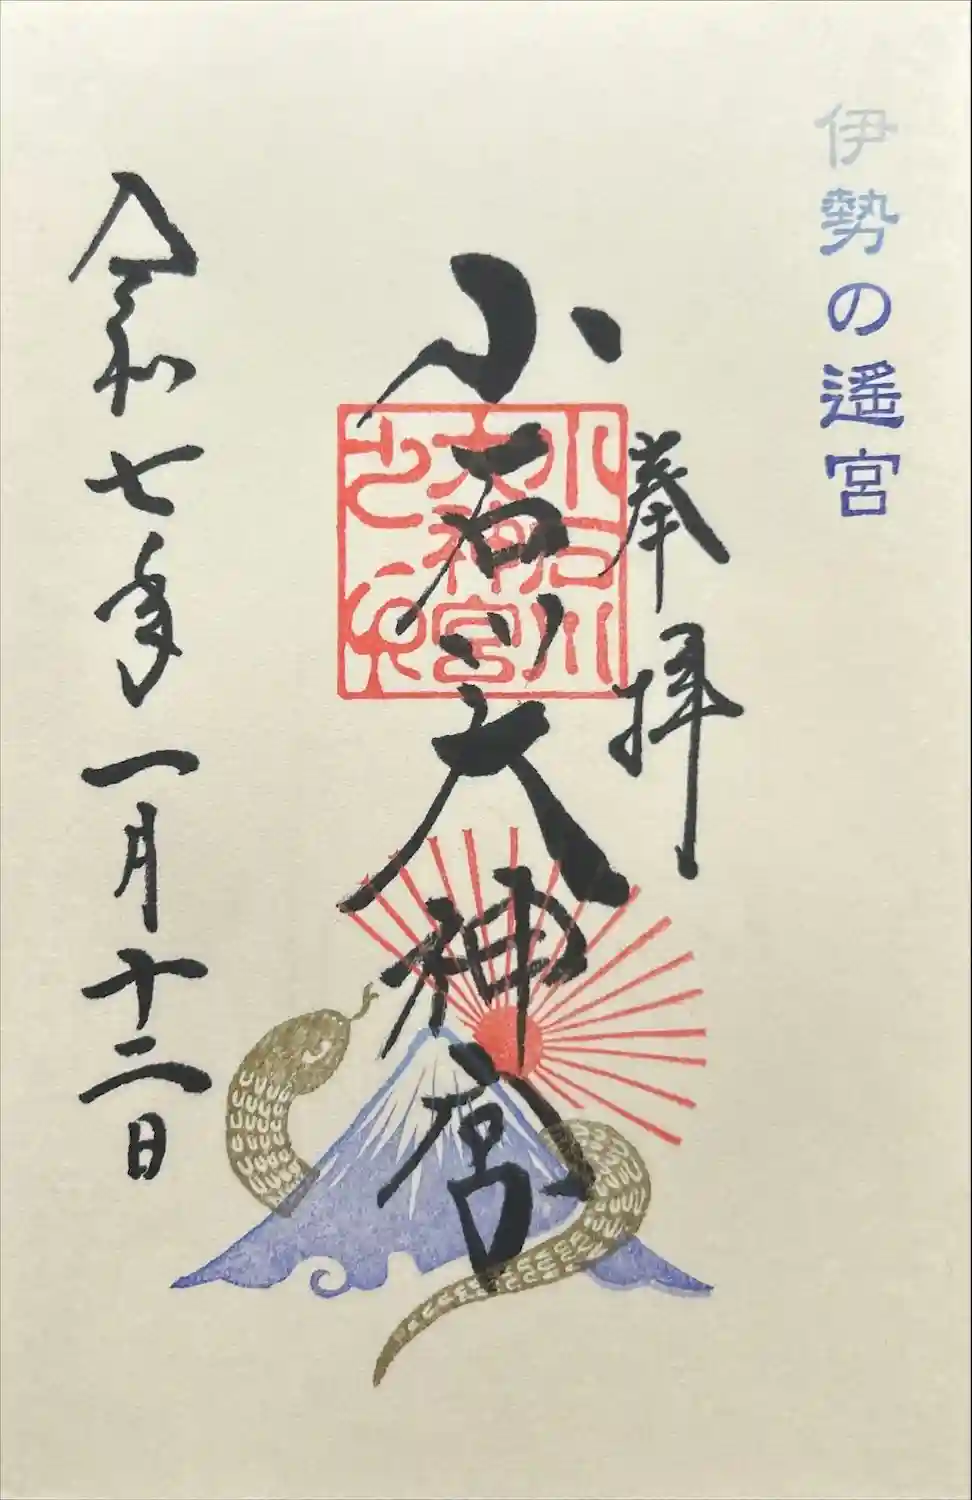 伊勢の遥宮
奉拝
小石川大神宮
小石川
大神宮
之印
令和七年一月十二日